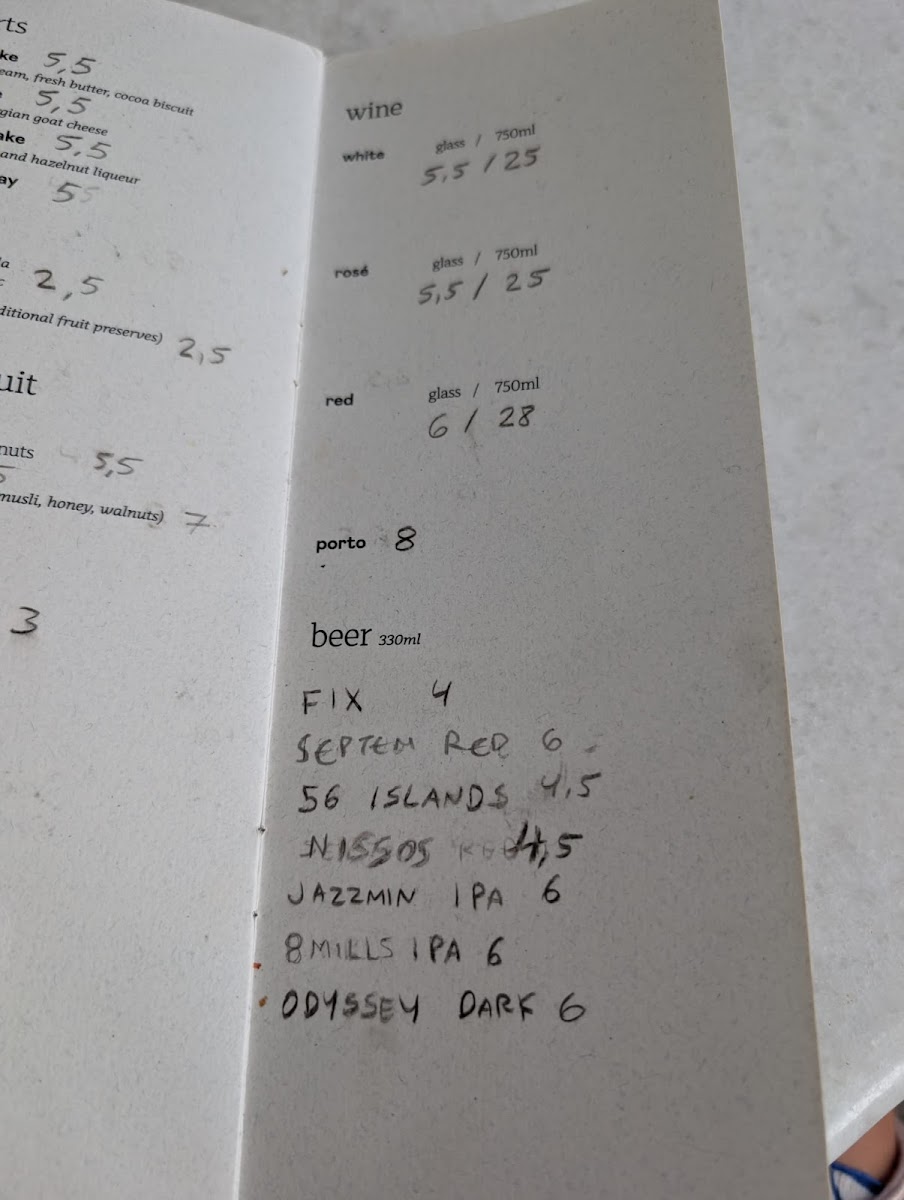 rts
ke 5,5
eam, fresh butter, cocoa biscuit
5,5
gian goat cheese
ake 5,5
and hazelnut liqueur
ay 5
a
2,5
ditional fruit preserves) 2,5
uit
nuts 5,5
musli, honey, walnuts) 7
3
wine
white glass / 750ml
5,5 / 25
rosé glass / 750ml
5,5 / 25
red glass / 750ml
6 / 28
porto 8
beer 330ml
FIX 4
SEPTEM RED 6
56 ISLANDS 4,5
NISSOS 4,5
JAZZMIN IPA 6
8MILLS IPA 6
ODYSSEY DARK 6